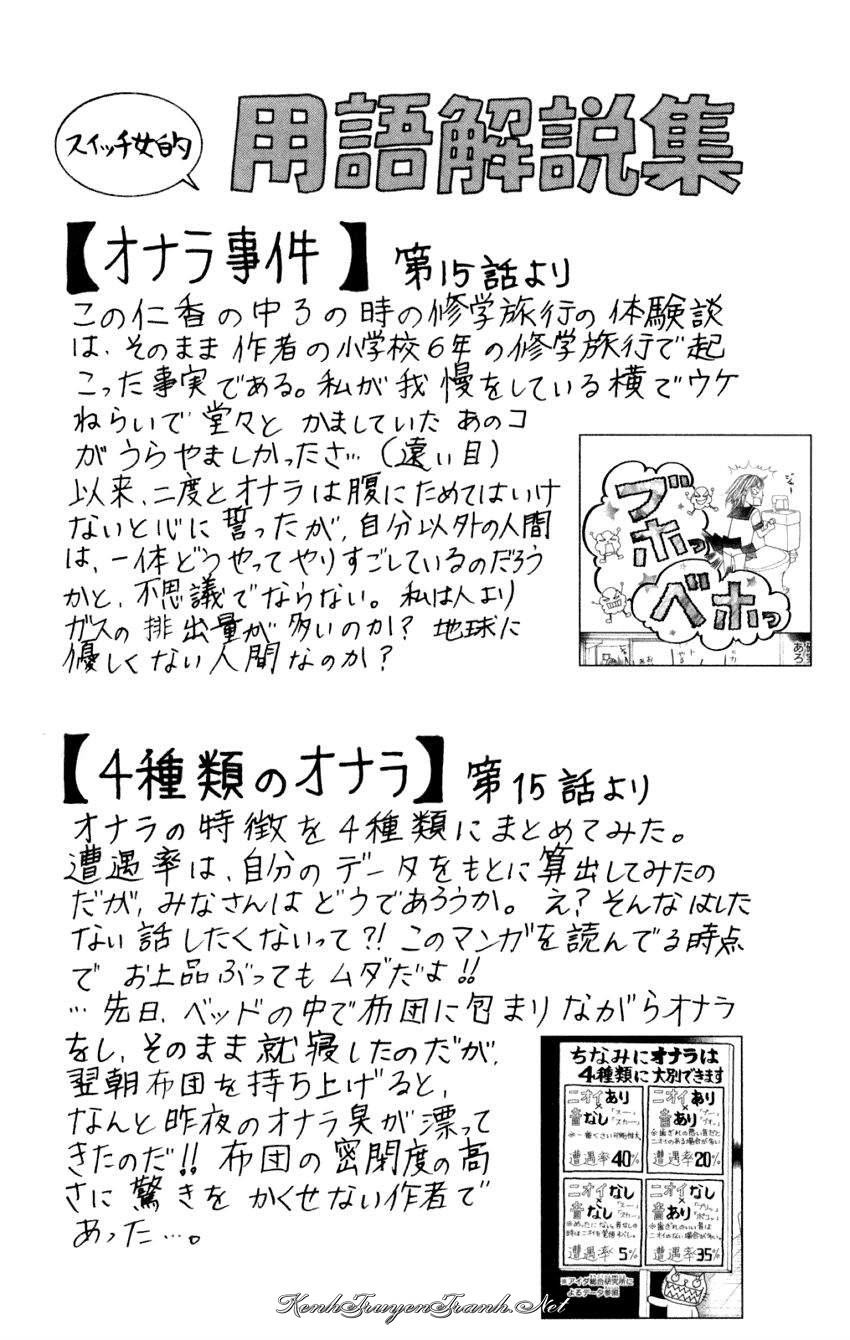 スイッチ女的
用語解説集
【オナラ事件】 第15話より
この仁香の中3の時の修学旅行の体験談
は、そのまま作者の小学校6年の修学旅行で起
こった事実である。私が我慢をしている横でウケ
ねらいで堂々とかましていたあのコ
がうらやましかったさ…(遠い目)
以来、二度とオナラは腹にためてはいけ
ないと心に誓ったが、自分以外の人間
は、一体どうやってやりすごしているのだろう
かと、不思議でならない。私は人より
ガスの排出量が多いのか?地球に
優しくない人間なのか?
ブホっ
ベホっ
【4種類のオナラ】 第15話より
オナラの特徴を4種類にまとめてみた。
遭遇率は、自分のデータをもとに算出してみたの
だが、みなさんはどうであろうか。え?そんなはした
ない話したくないって?!このマンガを読んでる時点
でお上品ぶってもムダだよ!!
…先日、ベッドの中で布団に包まりながらオナラ
をし、そのまま就寝したのだが、
翌朝布団を持ち上げると、
なんと昨夜のオナラ臭が漂って
きたのだ!!布団の密閉度の高
さに驚きをかくせない作者で
あった…。
ちなみにオナラは
4種類に大別できます
ニオイあり
×
音なし「スー…」「スカー…」
遭遇率40%
ニオイあり
×
音あり
遭遇率20%
ニオイなし
×
音なし「スー…」「スカー…」
遭遇率5%
ニオイなし
×
音あり
遭遇率35%
※アイダ総合研究所に
よるデータ参照
KenhTruyenTranh.Net